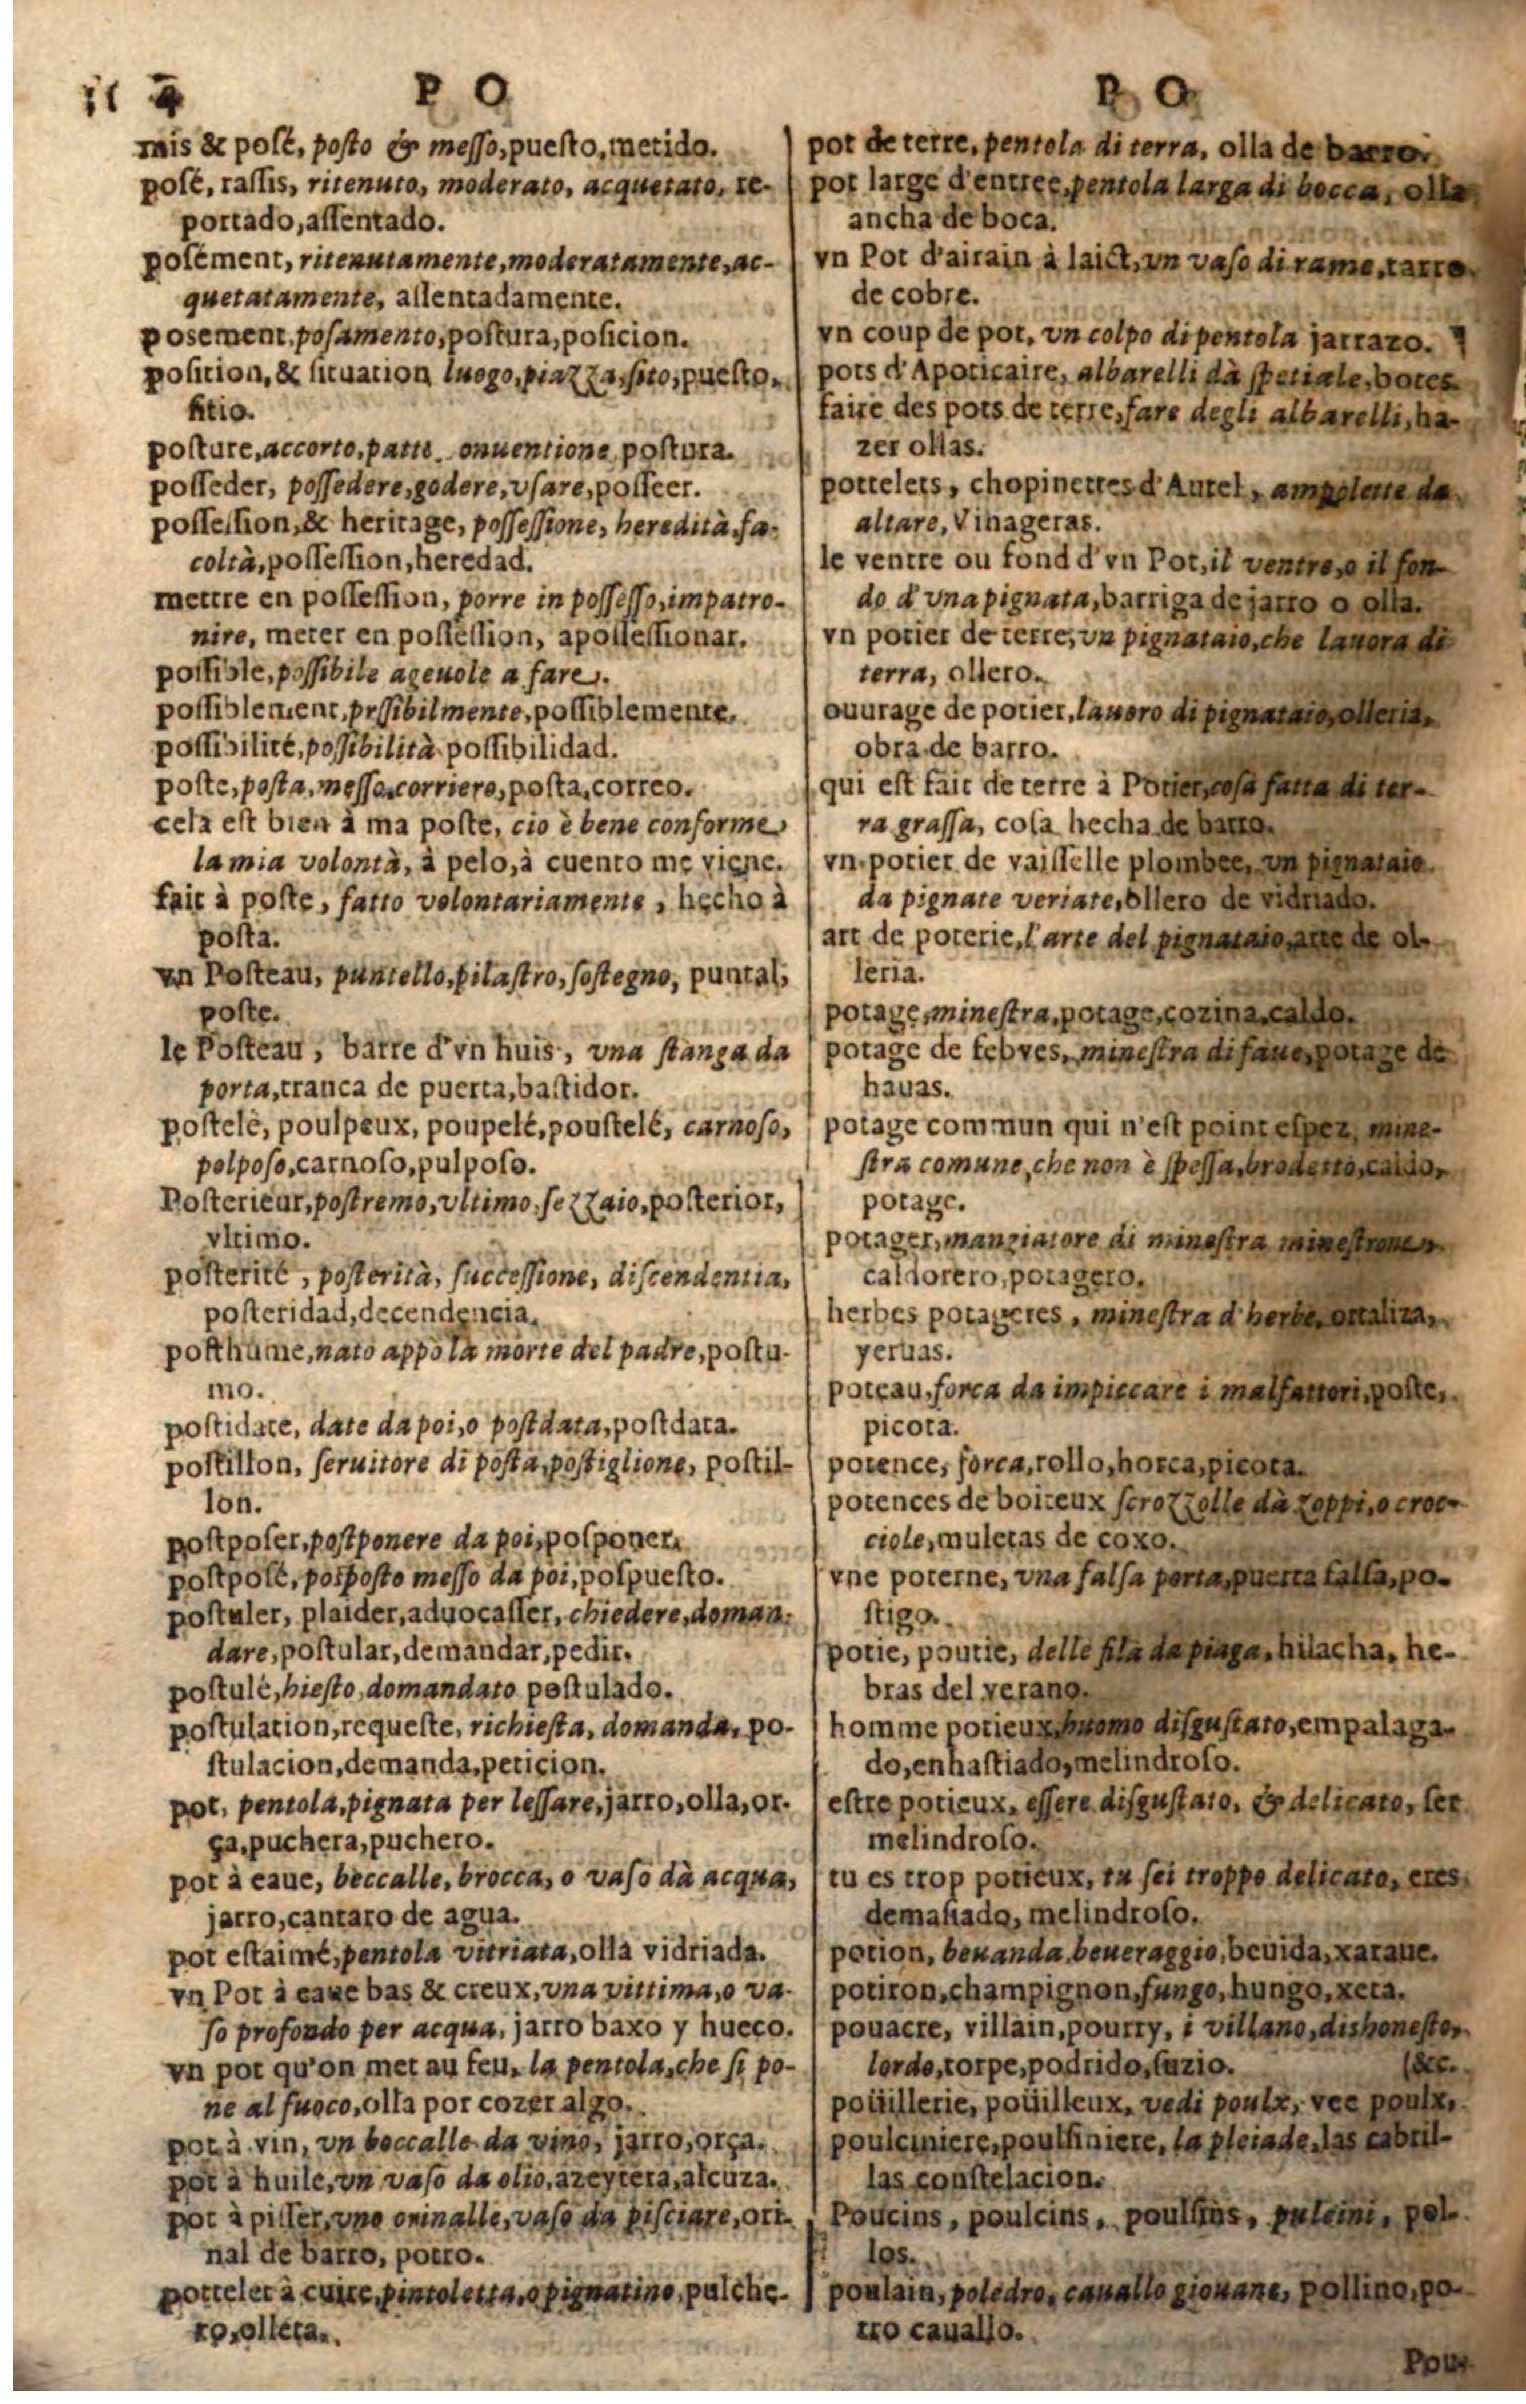 4
P O
mis & posé, posto & messo, puesto, metido.
posé, rassis, ritenuto, moderato, acquetato, re-
portado, assentado.
posément, ritenutamente, moderatamente, ac-
quetatamente, assentadamente.
posement, posamento, postura, posicion.
position, & situation luogo, piazza, sito, puesto,
sitio.
posture, accorto, patti onuentione postura.
posseder, possedere, godere, vsare, posseer.
possession, & heritage, possessione, heredità, fa-
coltà, possession, heredad.
mettre en possession, porre in possesso, impatro-
nire, meter en possession, apossessionar.
possible, possibile ageuole a fare.
possiblement, pssibilmente, possiblemente.
possibilité, possibilità possibilidad.
poste, posta, messo, corriero, posta, correo.
cela est bien à ma poste, cio è bene conforme
la mia volontà, à pelo, à cuento me viene.
fait à poste, fatto volontariamente, hecho à
posta.
vn Posteau, puntello, pilastro, sostegno, puntal,
poste.
le Posteau, barre d'vn huis, vna stanga da
porta, tranca de puerta, bastidor.
postelé, poulpeux, poupelé, poustelé, carnoso,
polposo, carnoso, pulposo.
Posterieur, postremo, vltimo, sezzaio, posterior,
vltimo.
posterité, posterità, successione, discendentia,
posteridad, decendencia.
posthume, nato appò la morte del padre, postu-
mo.
postidate, date da poi, o postdata, postdata.
postillon, seruitore di posta, postiglione, postil-
lon.
postposer, postponere da poi, posponer.
postposé, posposto messo da poi, pospuesto.
postuler, plaider, aduocasser, chiedere, doman-
dare, postular, demandar, pedir.
postulé, hiesto, domandato postulado.
postulation, requeste, richiesta, domanda, po-
stulacion, demanda, peticion.
pot, pentola, pignata per lessare, jarro, olla, or-
ça, puchera, puchero.
pot à eaue, beccalle, brocca, o vaso dà acqua,
jarro, cantaro de agua.
pot estaimé, pentola vitriata, olla vidriada.
vn Pot à eaue bas & creux, vna vittima, o va-
so profondo per acqua, jarro baxo y hueco.
vn pot qu'on met au feu, la pentola, che si po-
ne al fuoco, olla por cozer algo.
pot à vin, vn boccalle da vino, jarro, orça.
pot à huile, vn vaso da olio, azeytera, alcuza.
pot à pisser, vno orinalle, vaso da pisciare, ori-
nal de barro, potro.
pottelet à cuire, pintoletta, o pignatino, pulche-
ro, olleta.
P O
pot de terre, pentola di terra, olla de barro.
pot large d'entree, pentola larga di bocca, olla
ancha de boca.
vn Pot d'airain à laict, vn vaso di rame, tarro
de cobre.
vn coup de pot, vn colpo di pentola jarrazo.
pots d'Apoticaire, albarelli dà spetiale, botes.
faire des pots de terre, fare degli albarelli, ha-
zer ollas.
pottelets, chopinettes d'Autel, ampolette da
altare, Vinageras.
le ventre ou fond d'vn Pot, il ventre, o il fon-
do d'vna pignata, barriga de jarro o olla.
vn potier de terre, vn pignataio, che lauora di
terra, ollero.
ouurage de potier, lauoro di pignataio, olleria,
obra de barro.
qui est fait de terre à Potier, cosa fatta di ter-
ra grassa, cosa hecha de barro.
vn potier de vaisselle plombee, vn pignataio
da pignate veriate, ollero de vidriado.
art de poterie, l'arte del pignataio, arte de ol-
leria.
potage, minestra, potage, cozina, caldo.
potage de febves, minestra di faue, potage de
hauas.
potage commun qui n'est point espez, mine-
stra comune, che non è spessa, brodetto, caldo,
potage.
potager, mangiatore di minestra minestrone,
caldorero, potagero.
herbes potageres, minestra d'herbe, ortaliza,
yeruas.
poteau, forca da impiccare i malfattori, poste,
picota.
potence, forca, rollo, horca, picota.
potences de boiteux scrozzolle dà zoppi, o croc-
ciole, muletas de coxo.
vne poterne, vna falsa porta, puerta falsa, po-
stigo.
potie, poutie, delle fila da piaga, hilacha, he-
bras del verano.
homme potieux, huomo disgustato, empalaga-
do, enhastiado, melindroso.
estre potieux, essere disgustato, & delicato, ser
melindroso.
tu es trop potieux, tu sei troppo delicato, eres
demasiado, melindroso.
potion, beuanda beueraggio, beuida, xaraue.
potiron, champignon, fungo, hungo, xeta.
pouacre, villain, pourry, i villano, dishonesto,
lordo, torpe, podrido, suzio. (&c.
poüillerie, poüilleux, vedi poulx, vee poulx,
poulciniere, poulsiniere, la pleiade, las cabril-
las constelacion.
Poucins, poulcins, poulsins, pulcini, pol-
los.
poulain, poledro, cauallo giouane, pollino, po-
tro cauallo.
Pou-